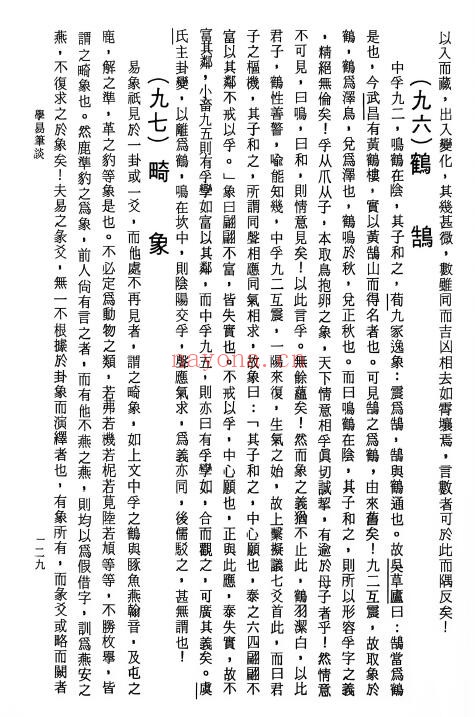 以入而藏，出入變化，其幾甚微，數雖同而吉凶相去如霄壤焉，言數者可於此而隅反矣！
（九六）鶴　鵠
中孚九二，鳴鶴在陰，其子和之，荀九家逸象：震爲鵠，鵠與鶴通也。故吳草廬曰：鵠當爲鶴
是也，今武昌有黃鶴樓，實以黃鵠山而得名者也。可見鵠之爲鶴，由來舊矣！九二互震，故取象於
鶴，鶴爲澤鳥，兌爲澤也，鶴鳴於秋，兌正秋也。而曰鳴鶴在陰，其子和之，則所以形容孚字之義
，精絕無倫矣！孚从爪从子，本取鳥抱卵之象，天下情意相孚眞切誠摯，有逾於母子者乎！然情意
不可見，曰鳴，曰和，則情意見矣！以此言孚。無餘蘊矣！然而象之義猶不止此，鶴羽潔白，以比
君子，鶴性善警，喩能知幾，中孚九二互震，一陽來復，生氣之始，故上繫擬議七爻首此，而曰君
子之樞機，其子和之，所謂同聲相應同氣相求，故象曰：「其子和之，中心願也，泰之六四翩翩不
富以其鄰不戒以孚。」象曰翩翩不富，皆失實也。不戒以孚，中心願也，正與此應，泰失實，故不
富其鄰，小畜九五則有孚攣如富以其鄰，而中孚九五，則亦曰有孚攣如，合而觀之，可廣其義矣。虞
氏主卦變，以離爲鶴，鳴在坎中，則陰陽交孚，聲應氣求，爲義亦同，後儒駁之，甚無謂也！
（九七）畸　象
易象祇見於一卦或一爻，而他處不再見者，謂之畸象，如上文中孚之鶴與豚魚燕翰音，及屯之
鹿，解之隼，革之豹等象是也。不必定爲動物之類，若茀若機若柅若莧陸若頄等等，不勝枚舉，皆
謂之畸象也。然鹿隼豹之爲象，前人尙有言之者，而有他不燕之燕，則均以爲假借字，訓爲燕安之
燕，不復求之於象矣！夫易之彖爻，無一不根據於卦象而演繹者也，有象所有，而彖爻或略而闕者
學易筆談
一二九
nayona.cn